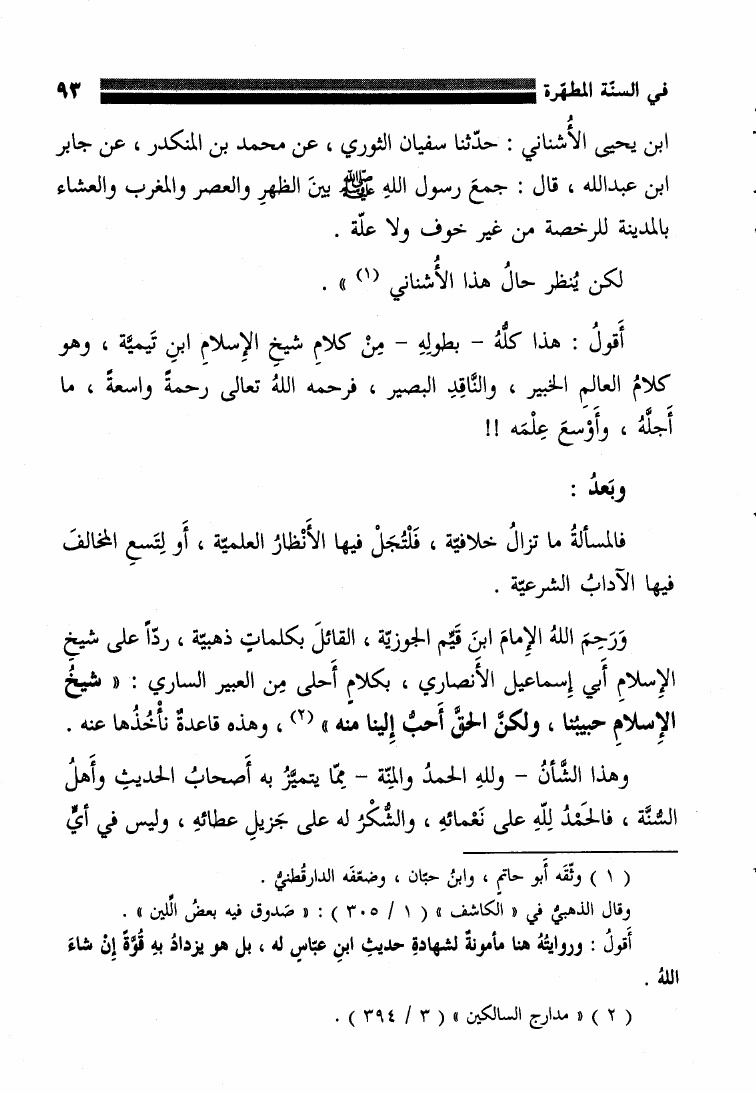 في السنّة المطهّرة ٩٣
ابن يحيى الأُشناني : حدّثنا سفيان الثوري ، عن محمد بن المنكدر ، عن جابر
ابن عبدالله ، قال : جمعَ رسول اللهِ ﷺ بينَ الظهرِ والعصر والمغرب والعشاء
بالمدينة للرخصة من غير خوف ولا علّة .
لكن يُنظر حالُ هذا الأُشناني (١) » .
أَقولُ : هذا كلُّهُ - بطولِهِ - مِنْ كلامِ شيخِ الإِسلامِ ابنِ تَيميَّة ، وهو
كلامُ العالمِ الخبير ، والنَّاقِدِ البصير ، فرحمه اللهُ تعالى رحمةً واسعةً ، ما
أَجلَّهُ ، وأَوْسعَ عِلْمَه !!
وبَعدُ :
فالمسألةُ ما تزالُ خلافيّة ، فَلْتُجَلْ فيها الأَنْظارُ العلميّة ، أَو لِتَسعِ المخالفَ
فيها الآدابُ الشرعيّة .
وَرَحِمَ اللهُ الإِمامَ ابنَ قَيِّم الجوزيّة ، القائلَ بكلماتٍ ذهبيّة ، ردّاً على شيخِ
الإِسلامِ أَبي إِسماعيل الأَنصاري ، بكلامٍ أَحلى مِن العبير الساري : « شيخُ
الإِسلامِ حبيبُنا ، ولكنَّ الحقَّ أَحبُّ إِلينا منه » (٢) ، وهذه قاعدةٌ نأْخُذُها عنه .
وهذا الشَّأنُ - وللهِ الحمدُ والمنّة - مِمّا يتميَّزُ به أَصحابُ الحديثِ وأَهلُ
السُّنَّة ، فالحَمْدُ لِلّهِ على نَعْمائهِ ، والشُّكْرُ له على جَزيلِ عطائهِ ، وليس في أَيِّ
( ١ ) وثَّقَه أَبو حاتمٍ ، وابنُ حبّان ، وضعّفَه الدارقُطنيُّ .
وقال الذهبيُّ في « الكاشف » ( ١ / ٣٠٥ ) : « صَدوق فيه بعضُ الِّلين » .
أَقولُ : وروايتُهُ هنا مأمونةٌ لشهادةِ حديثِ ابنِ عبّاسٍ له ، بل هو يزدادُ بهِ قُوّةً إِنْ شاءَ
اللهُ .
( ٢ ) « مدارج السالكين » ( ٣ / ٣٩٤ ) .